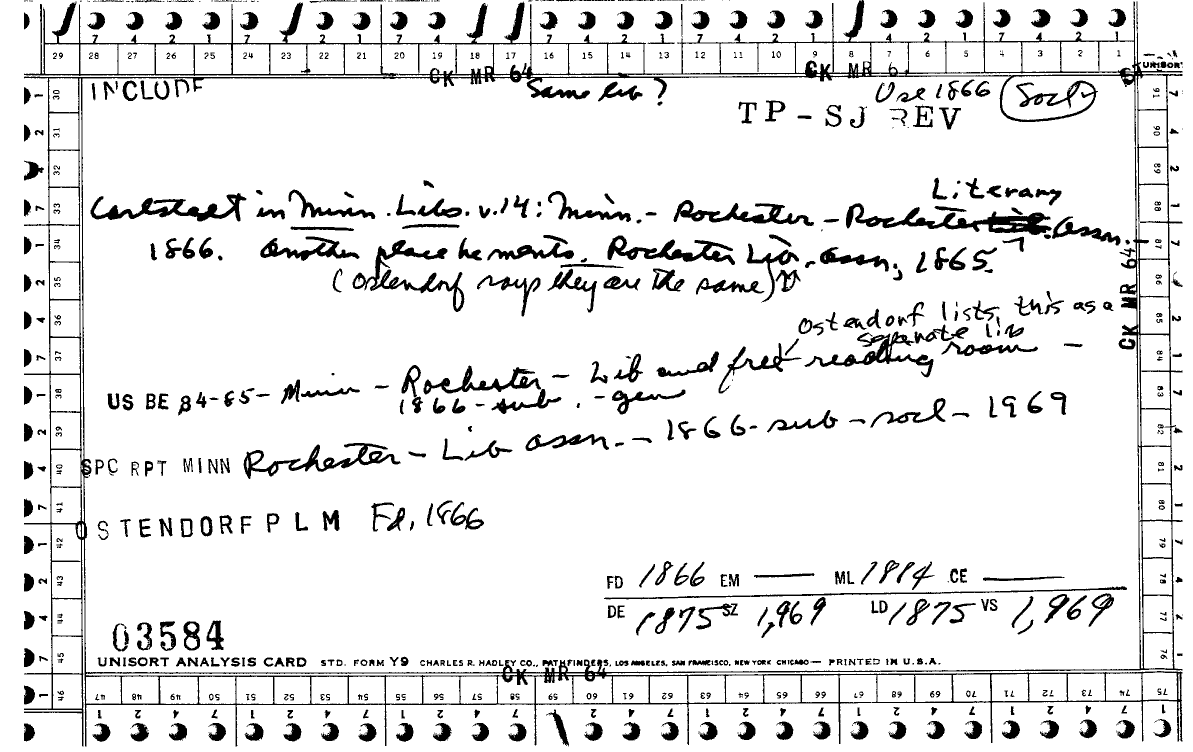 29 28 27 26 25 24 23 22 21 20 19 18 17 16 15 14 13 12 11 10 9 8 7 6 5 4 3 2 1
UNISORT
CK MR 64
CK MR 6
INCLUDE
Same lib?
Use 1866 Socl
TP-SJ REV
Literary
in Minn. Libs. v.14: Minn. - Rochester - Rochester Lib. Assn.
1866. Another place he ments. Rochester Lib. Assn, 1865.
(Ostendorf says they are the same)
CK MR 64
Ostendorf lists this as a
separate lib
US BE 84-85 - Minn - Rochester - Lib and free reading room -
1866 - sub. - gen
SPC RPT MINN Rochester - Lib assn. - 1866 - sub - socl - 1969
OSTENDORF P L M Fd, 1866
FD 1866 EM — ML 1884 CE —
DE 1875 SZ 1,969 LD 1875 VS 1,969
03584
UNISORT ANALYSIS CARD STD. FORM Y9 CHARLES R. HADLEY CO., PATHFINDERS, LOS ANGELES, SAN FRANCISCO, NEW YORK CHICAGO — PRINTED IN U.S.A.
CK MR 64
46 47 48 49 50 51 52 53 54 55 56 57 58 59 60 61 62 63 64 65 66 67 68 69 70 71 72 73 74 75